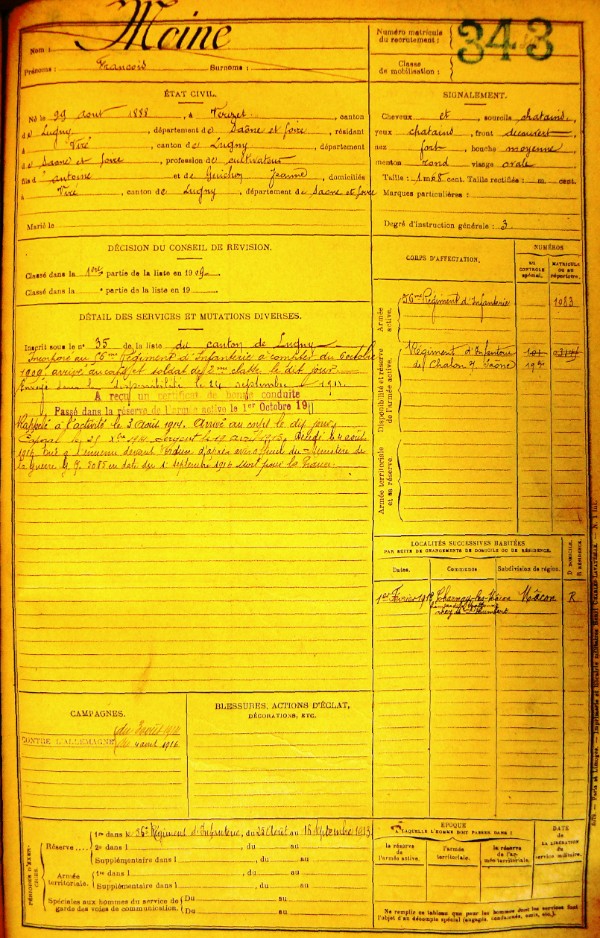 Nom : Moine
Prénoms : François Surnoms :
Numéro matricule du recrutement : 343
Classe de mobilisation :
ÉTAT CIVIL.
Né le 29 août 1888, à , canton
de Lugny, département de Saône et Loire, résidant
à Viré, canton de Lugny, département
de Saône et Loire, profession de cultivateur
fils d'Antoine et de Jeanne, domiciliés
à Viré, canton de Lugny, département de Saône et Loire
Marié le
SIGNALEMENT.
Cheveux et sourcils chatains,
yeux chatains, front découvert
nez fort, bouche moyenne
menton rond visage ovale
Taille : 1 m. 68 cent. Taille rectifiée : m. cent.
Marques particulières :
Degré d'instruction générale : 3
DÉCISION DU CONSEIL DE REVISION.
Classé dans la 1ère partie de la liste en 1909.
Classé dans la partie de la liste en 19
DÉTAIL DES SERVICES ET MUTATIONS DIVERSES.
Inscrit sous le n° 35 de la liste du canton de Lugny
Incorporé au 56me Régiment d'Infanterie à compter du octobre
1909 arrivé au corps et soldat de 2me classe le dit jour
Envoyé dans la disponibilité le 24 septembre 191
A reçu un certificat de bonne conduite
Passé dans la réserve de l'armée active le 1er Octobre 191
Rappelé à l'activité le 3 août 1914. Arrivé au corps le dit jour
Caporal le Sergent le Décédé le 4 août
1916 tué à l'ennemi devant Verdun d'après avis officiel du Ministère de
la Guerre 3085 en date du 1 septembre 1916 Mort pour la France
CORPS D'AFFECTATION.
NUMÉROS
AU CONTROLE spécial.
MATRICULE OU AU répertoire.
Armée active.
56me Régiment d'Infanterie 1083
Disponibilité et réserve de l'armée active.
Régiment d'Infanterie
de Chalon s/ Saône
Armée territoriale et sa réserve.
LOCALITÉS SUCCESSIVES HABITÉES
PAR SUITE DE CHANGEMENTS DE DOMICILE OU DE RÉSIDENCE.
Dates. Communes. Subdivisions de région. D DOMICILE. R RÉSIDENCE.
1er Février 191 Charnay-les-Mâcon Mâcon R
CAMPAGNES.
CONTRE L'ALLEMAGNE du 3 août 1914
au 4 août 1916
BLESSURES, ACTIONS D'ÉCLAT,
DÉCORATIONS, ETC.
PÉRIODES D'EXERCICES
Réserve
1re dans le 56e Régiment d'Infanterie, du 23 Août au 15 Septembre 1913
2e dans l , du au
Supplémentaire dans l , du au
Armée territoriale.
1re dans l , du au
Supplémentaire dans l , du au
Spéciales aux hommes du service de garde des voies de communication.
Du au
Du au
ÉPOQUE
À LAQUELLE L'HOMME DOIT PASSER DANS :
la réserve de l'armée active.
l'armée territoriale.
la réserve de l'armée territoriale.
DATE DE LA LIBÉRATION du service militaire.
Ne remplir ce tableau que pour les hommes dont les services font
l'objet d'un décompte spécial (engagés, condamnés, omis, etc.).